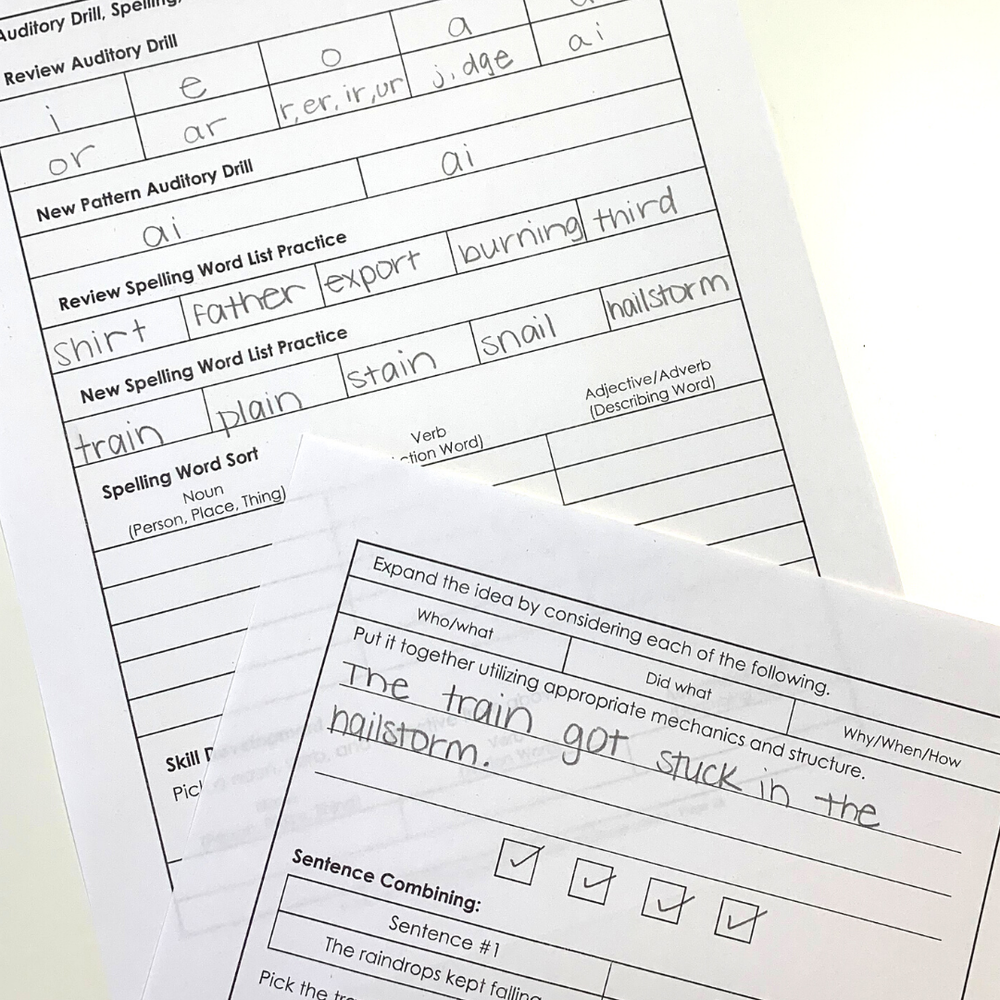 Auditory Drill, Spelling,
Review Auditory Drill
i e o a
or ar r, er, ir, ur j, dge ai
New Pattern Auditory Drill
ai ai
Review Spelling Word List Practice
shirt father export burning third
New Spelling Word List Practice
train plain stain snail hailstorm
Spelling Word Sort
Noun Verb Adjective/Adverb
(Person, Place, Thing) ction Word) (Describing Word)
Skill
Expand the idea by considering each of the following.
Who/what Did what Why/When/How
Put it together utilizing appropriate mechanics and structure.
The train got stuck in the
hailstorm.
Sentence Combining:
Sentence #1
The raindrops kept falling
Pick the